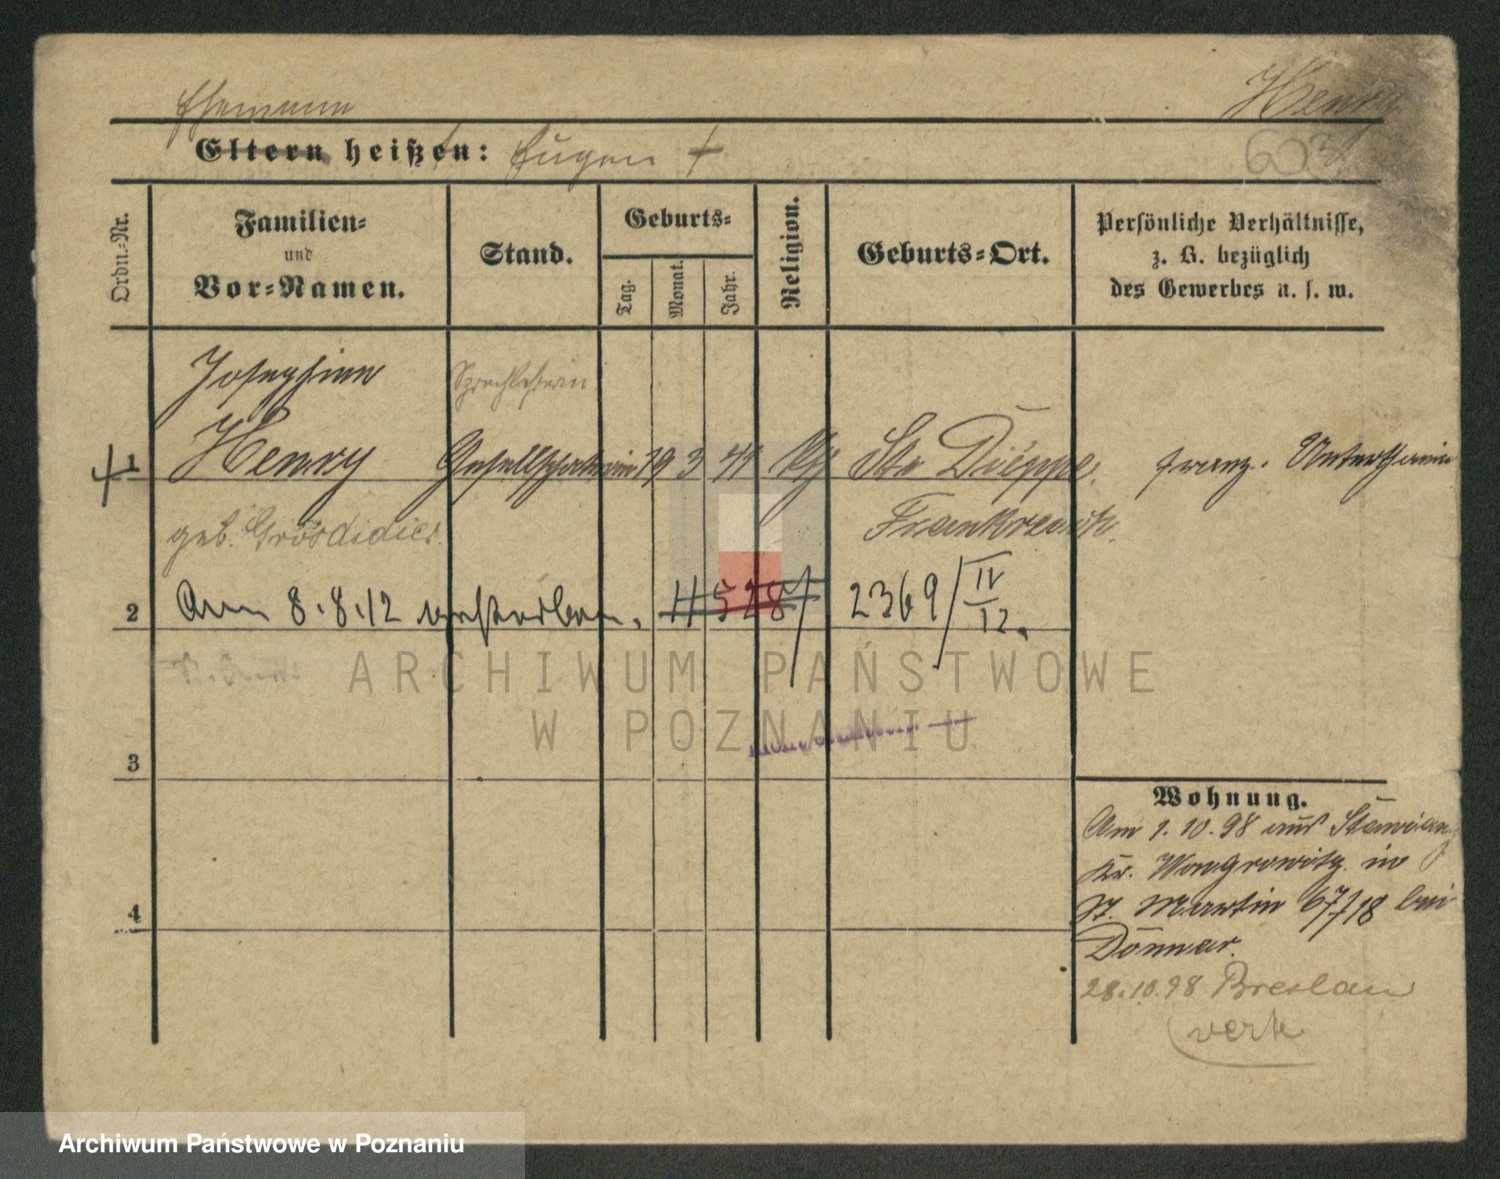 Ehemann Henry
Eltern heißen: Eugen †
603
Ordn.=Nr.
Familien=
und
Vor=Namen.
Stand.
Geburts=
Tag.
Monat.
Jahr.
Religion.
Geburts=Ort.
Persönliche Verhältnisse,
z. B. bezüglich
des Gewerbes u. s. w.
Josephine Sprachlehrerin
1 Henry Gesellschafterin 19 3 41 St. Dieppe. franz. Unterthanin
geb. Grosdidier. Frankreich.
2 Am 8.8.12 verstorben. 11528 2369/IV
12.
3
4
Wohnung.
Am 1.10.98 aus
Kr. Wongrowitz in
St. Martin 67/18 bei
Dönmar.
28.10.98 Breslau
verk
ARCHIWUM PAŃSTWOWE
W POZNANIU
Archiwum Państwowe w Poznaniu